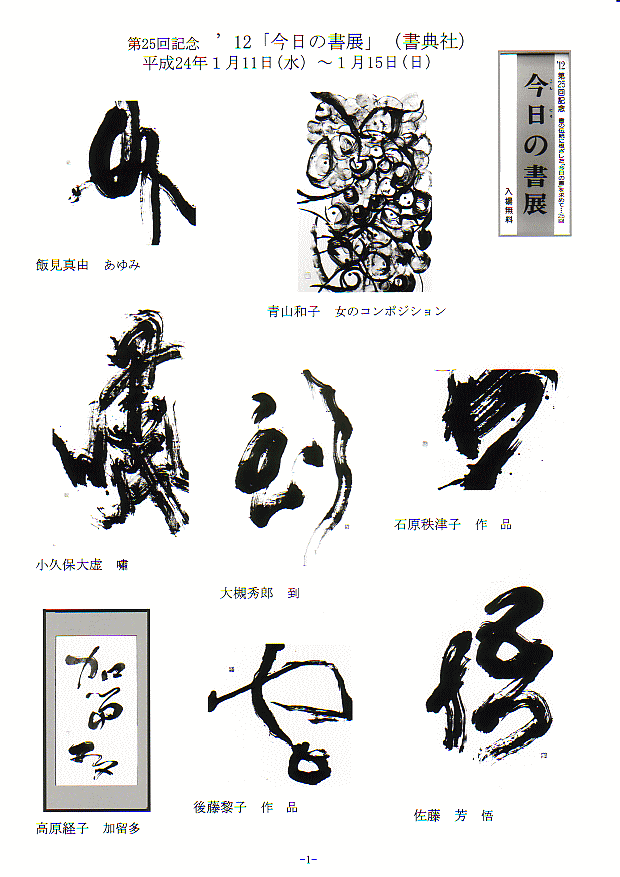 第25回記念　’12「今日の書展」（書典社）
平成24年１月11日(水)　～１月15日(日)
'12 第25回記念
今日の書展
入場無料
飯見真由　あゆみ
青山和子　女のコンポジション
小久保大虚　嘯
大槻秀郎　到
石原秩津子　作　品
加留多
高原経子　加留多
後藤黎子　作　品
悟
佐藤　芳　悟
-1-